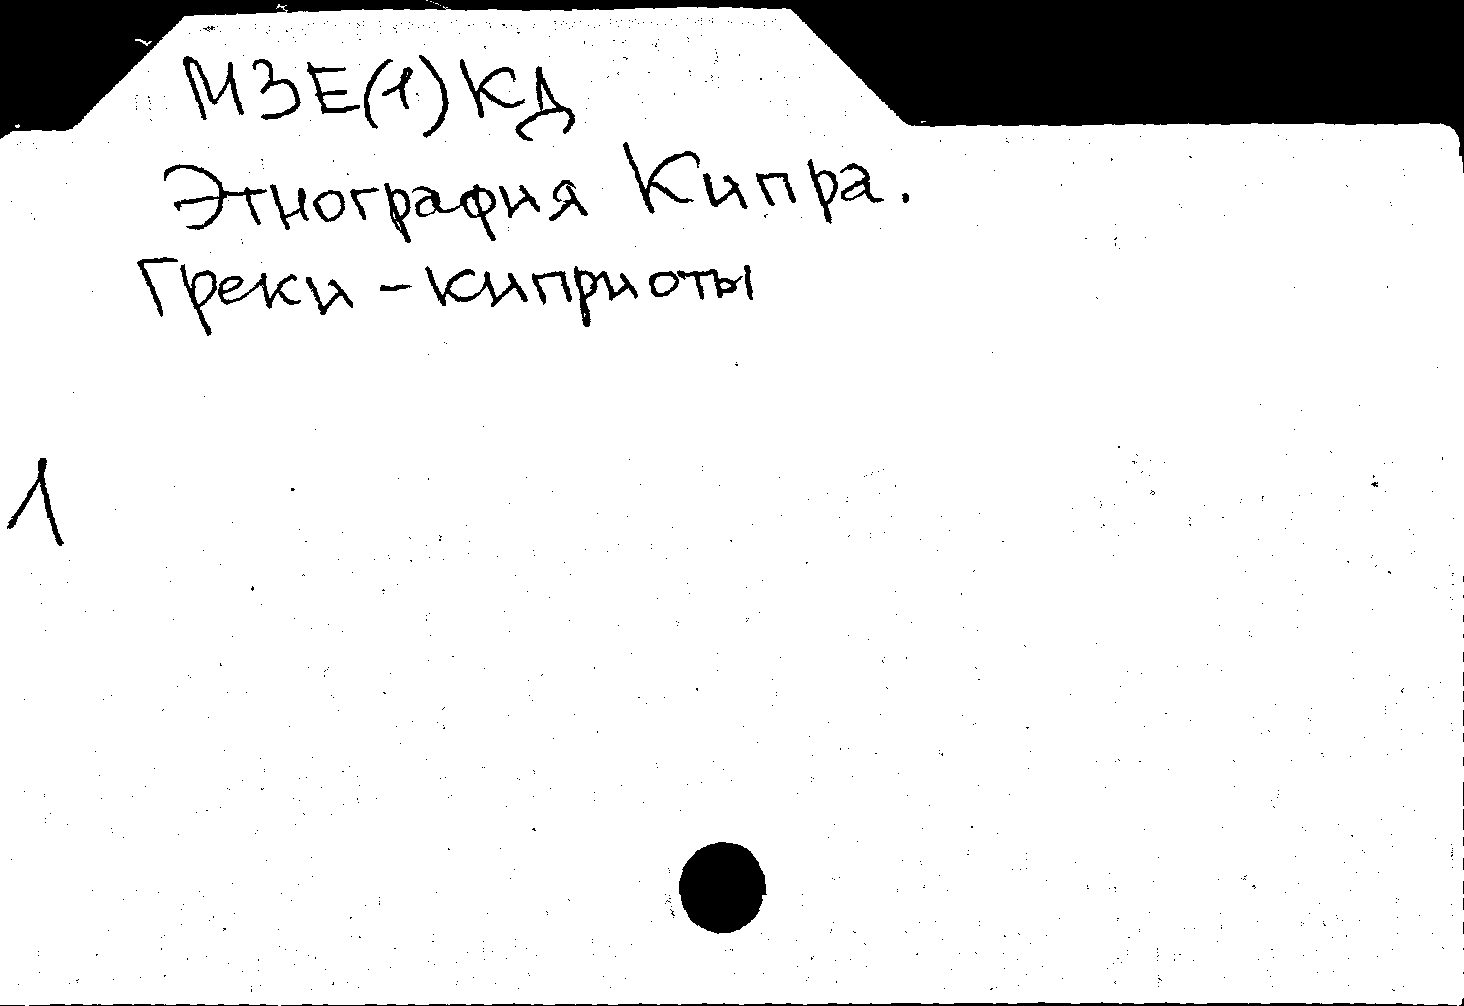 МЗЕ(1)КД
Этнография Кипра.
Греки - киприоты
1